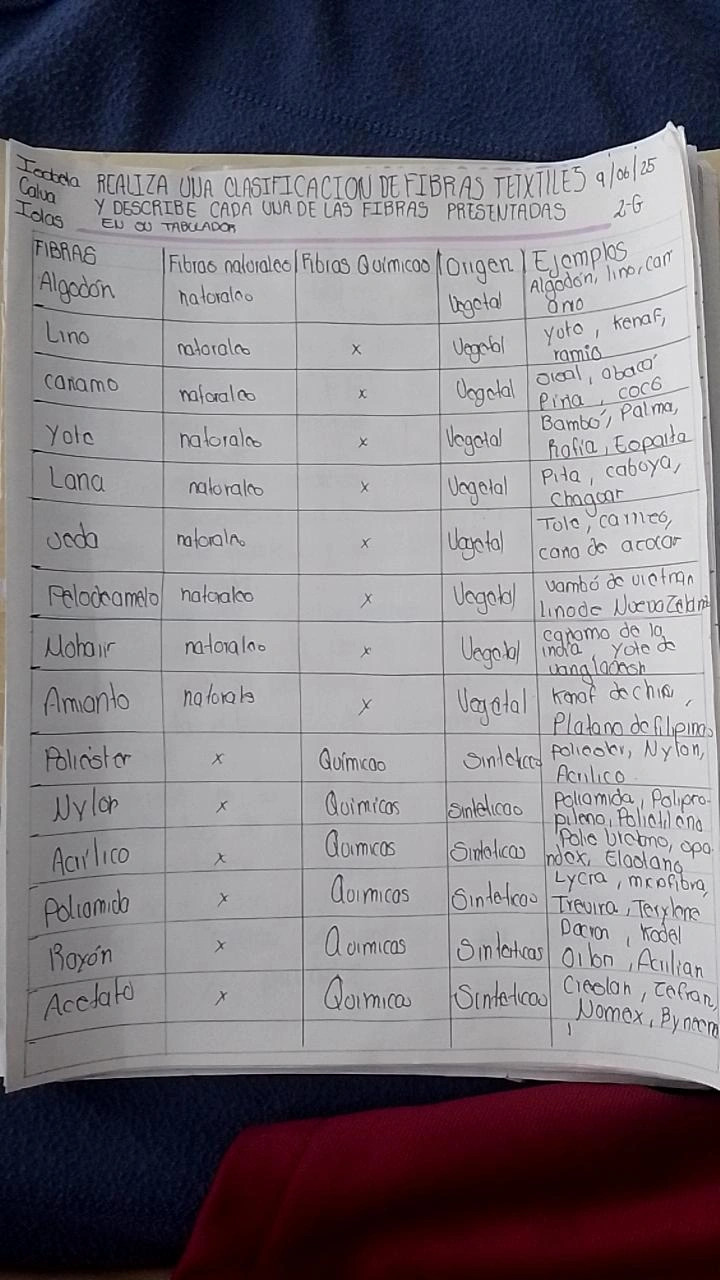 Isabela
Calva
Islas
REALIZA UNA CLASIFICACION DE FIBRAS TEIXTILES 9/06/25
Y DESCRIBE CADA UNA DE LAS FIBRAS PRESENTADAS 2-G
EN SU TABULADOR
FIBRAS Fibras naturales Fibras Químicas Origen Ejemplos
Algodón naturales Vegetal Algodón, lino, cañ
amo
Lino naturales x Vegetal Yute, Kenaf,
ramio
cañamo naturales x Vegetal sisal, abacá
Piña, coco
Yute naturales x Vegetal Bambó, Palma,
Rafia, Esparta
Lana naturales x Vegetal Pita, cabuya,
Chaguar
seda naturales x Vegetal Tule, carrizo,
caña de azocar
Pelodcamelo naturales x Vegetal vambó de vietnan
lino de Nueva Zeland
Mohair naturales x Vegetal cañamo de la
india, yute de
vangladesh
Amianto naturals x Vegetal Kenaf de chin,
Platano de filipinas
Poliéster x Químicas Sintetcas poliester, Nylon,
Acrilico
Nylon x Quimicas sintéticas Poliamida, Polipro-
pileno, Polietileno
Acrílico x Quimicas Sintéticas Polie uretano, spa-
ndex, Elastano
Poliamida x Quimicas Sintéticas Lycra, microfibra,
Trevira, Terylene
Rayón x Quimicas Sintéticas Dacron, Kodel
Orlon, Acrilian
Acetato x Quimicas Sintéticas Creslan, Zefran,
Nomex, Byneem